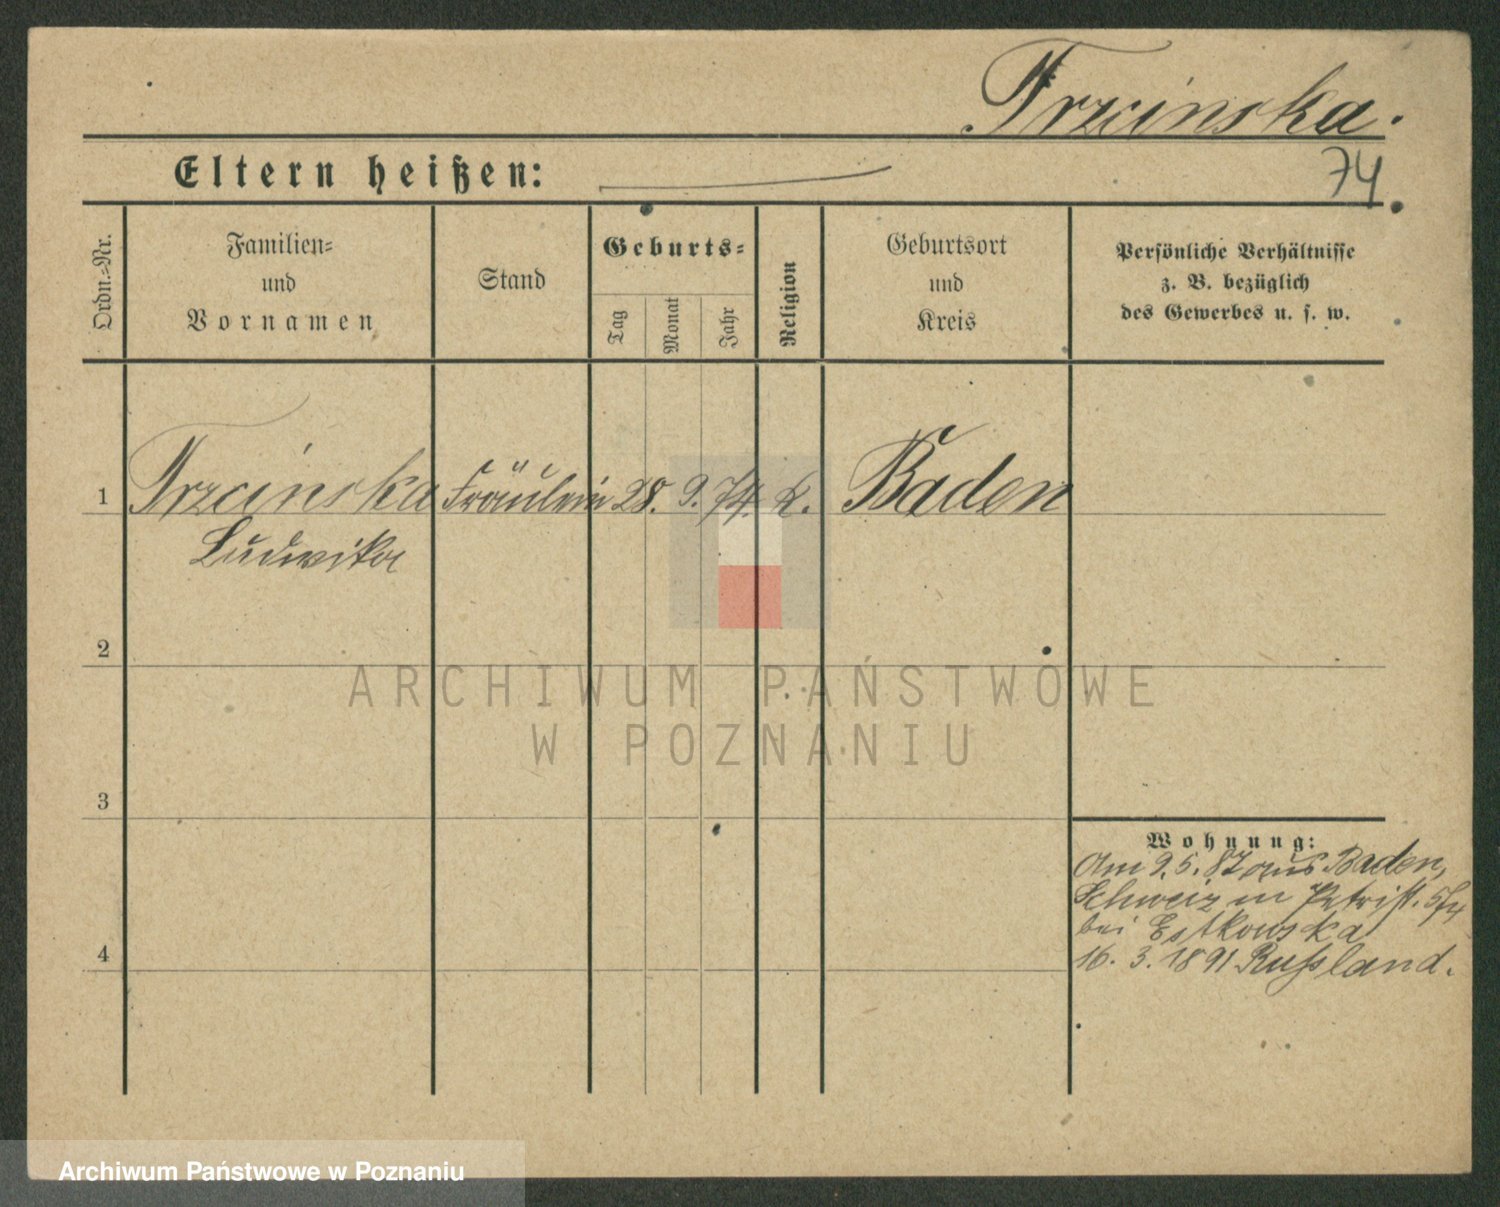 Trzcinska.
Eltern heißen:
74
Ordn.-Nr.
Familien-
und
Vornamen
Stand
Geburts-
Tag
Monat
Jahr
Religion
Geburtsort
und
Kreis
Persönliche Verhältnisse
z. B. bezüglich
des Gewerbes u. s. w.
1 Trzcinska Fräulein 28. 9. 74. k. Baden
Ludwika
2
ARCHIWUM PAŃSTWOWE
W POZNANIU
3
Wohnung:
Am 9.5.87 aus Baden,
Schweiz in Petrist. 5/4
bei Estkowska
4
16. 3. 1891 Rußland.
Archiwum Państwowe w Poznaniu